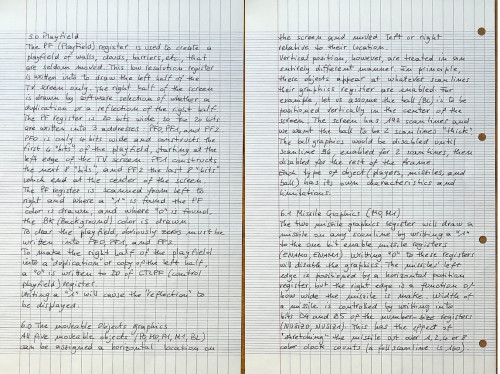 3.0 Playfield
The PF (Playfield) register is used to create a
playfield of walls, clouds, barriers, etc., that
are seldom moved. This low resolution register
is written into to draw the left half of the
TV screen only. The right half of the screen
is drawn by software selection of whether a
duplication or a reflection of the right half.
The PF register is 20 bits wide, so the 20 bits
are written into 3 addresses: PF0, PF1, and PF2.
PF0 is only 4 bits wide and constructs the
first 4 "bits" of the playfield, starting at the
left edge of the TV screen. PF1 constructs
the next 8 "bits", and PF2 the last 8 "bits"
which end at the center of the screen.
The PF register is scanned from left to
right and where a "1" is found the PF
color is drawn, and where "0" is found,
the BK (Background) color is drawn.
To clear the playfield, obviously zeros must be
written into PF0, PF1, and PF2.
To make the right half of the playfield
into a duplication or copy of the left half,
a "0" is written to D0 of CTLPF (control
playfield) register.
Writing a "1" will cause the "reflection" to
be displayed.
6.0 The moveable Objects graphics
All five moveable objects (P0, M0, P1, M1, BL)
can be assigned a horizontal location on
the screen and moved left or right
relative to their location.
Vertical position, however, are treated in an
entirely different manner. In principle,
these objects appear at whatever scanlines
their graphics register are enabled. For
example, let us assume the ball (BL) is to be
positioned vertically in the center of the
screen. The screen has 192 scanlines and
we want the ball to be 2 scanlines "thick".
The ball graphics would be disabled until
scanline 96, enabled for 2 scanlines, then
disabled for the rest of the frame.
Each type of object (players, missiles, and
ball) has its own characteristics and
limitations.
6.1 Missile Graphics (M0, M1)
The two missile graphics register will draw a
missile on any scanline by writing a "1"
to the one bit enable missile registers
(ENAM0, ENAM1). Writing "0" to these registers
will disable the graphics. The missiles' left
edge is positioned by a horizontal position
register, but the right edge is a function of
how wide the missile is made. Width of
a missile is controlled by writing into
bits D4 and D5 of the number-size registers
(NUSIZ0, NUSIZ1). This has the effect of
"stretching" the missile at over 1, 2, 4 or 8
color clock counts (a full scanline is 160).